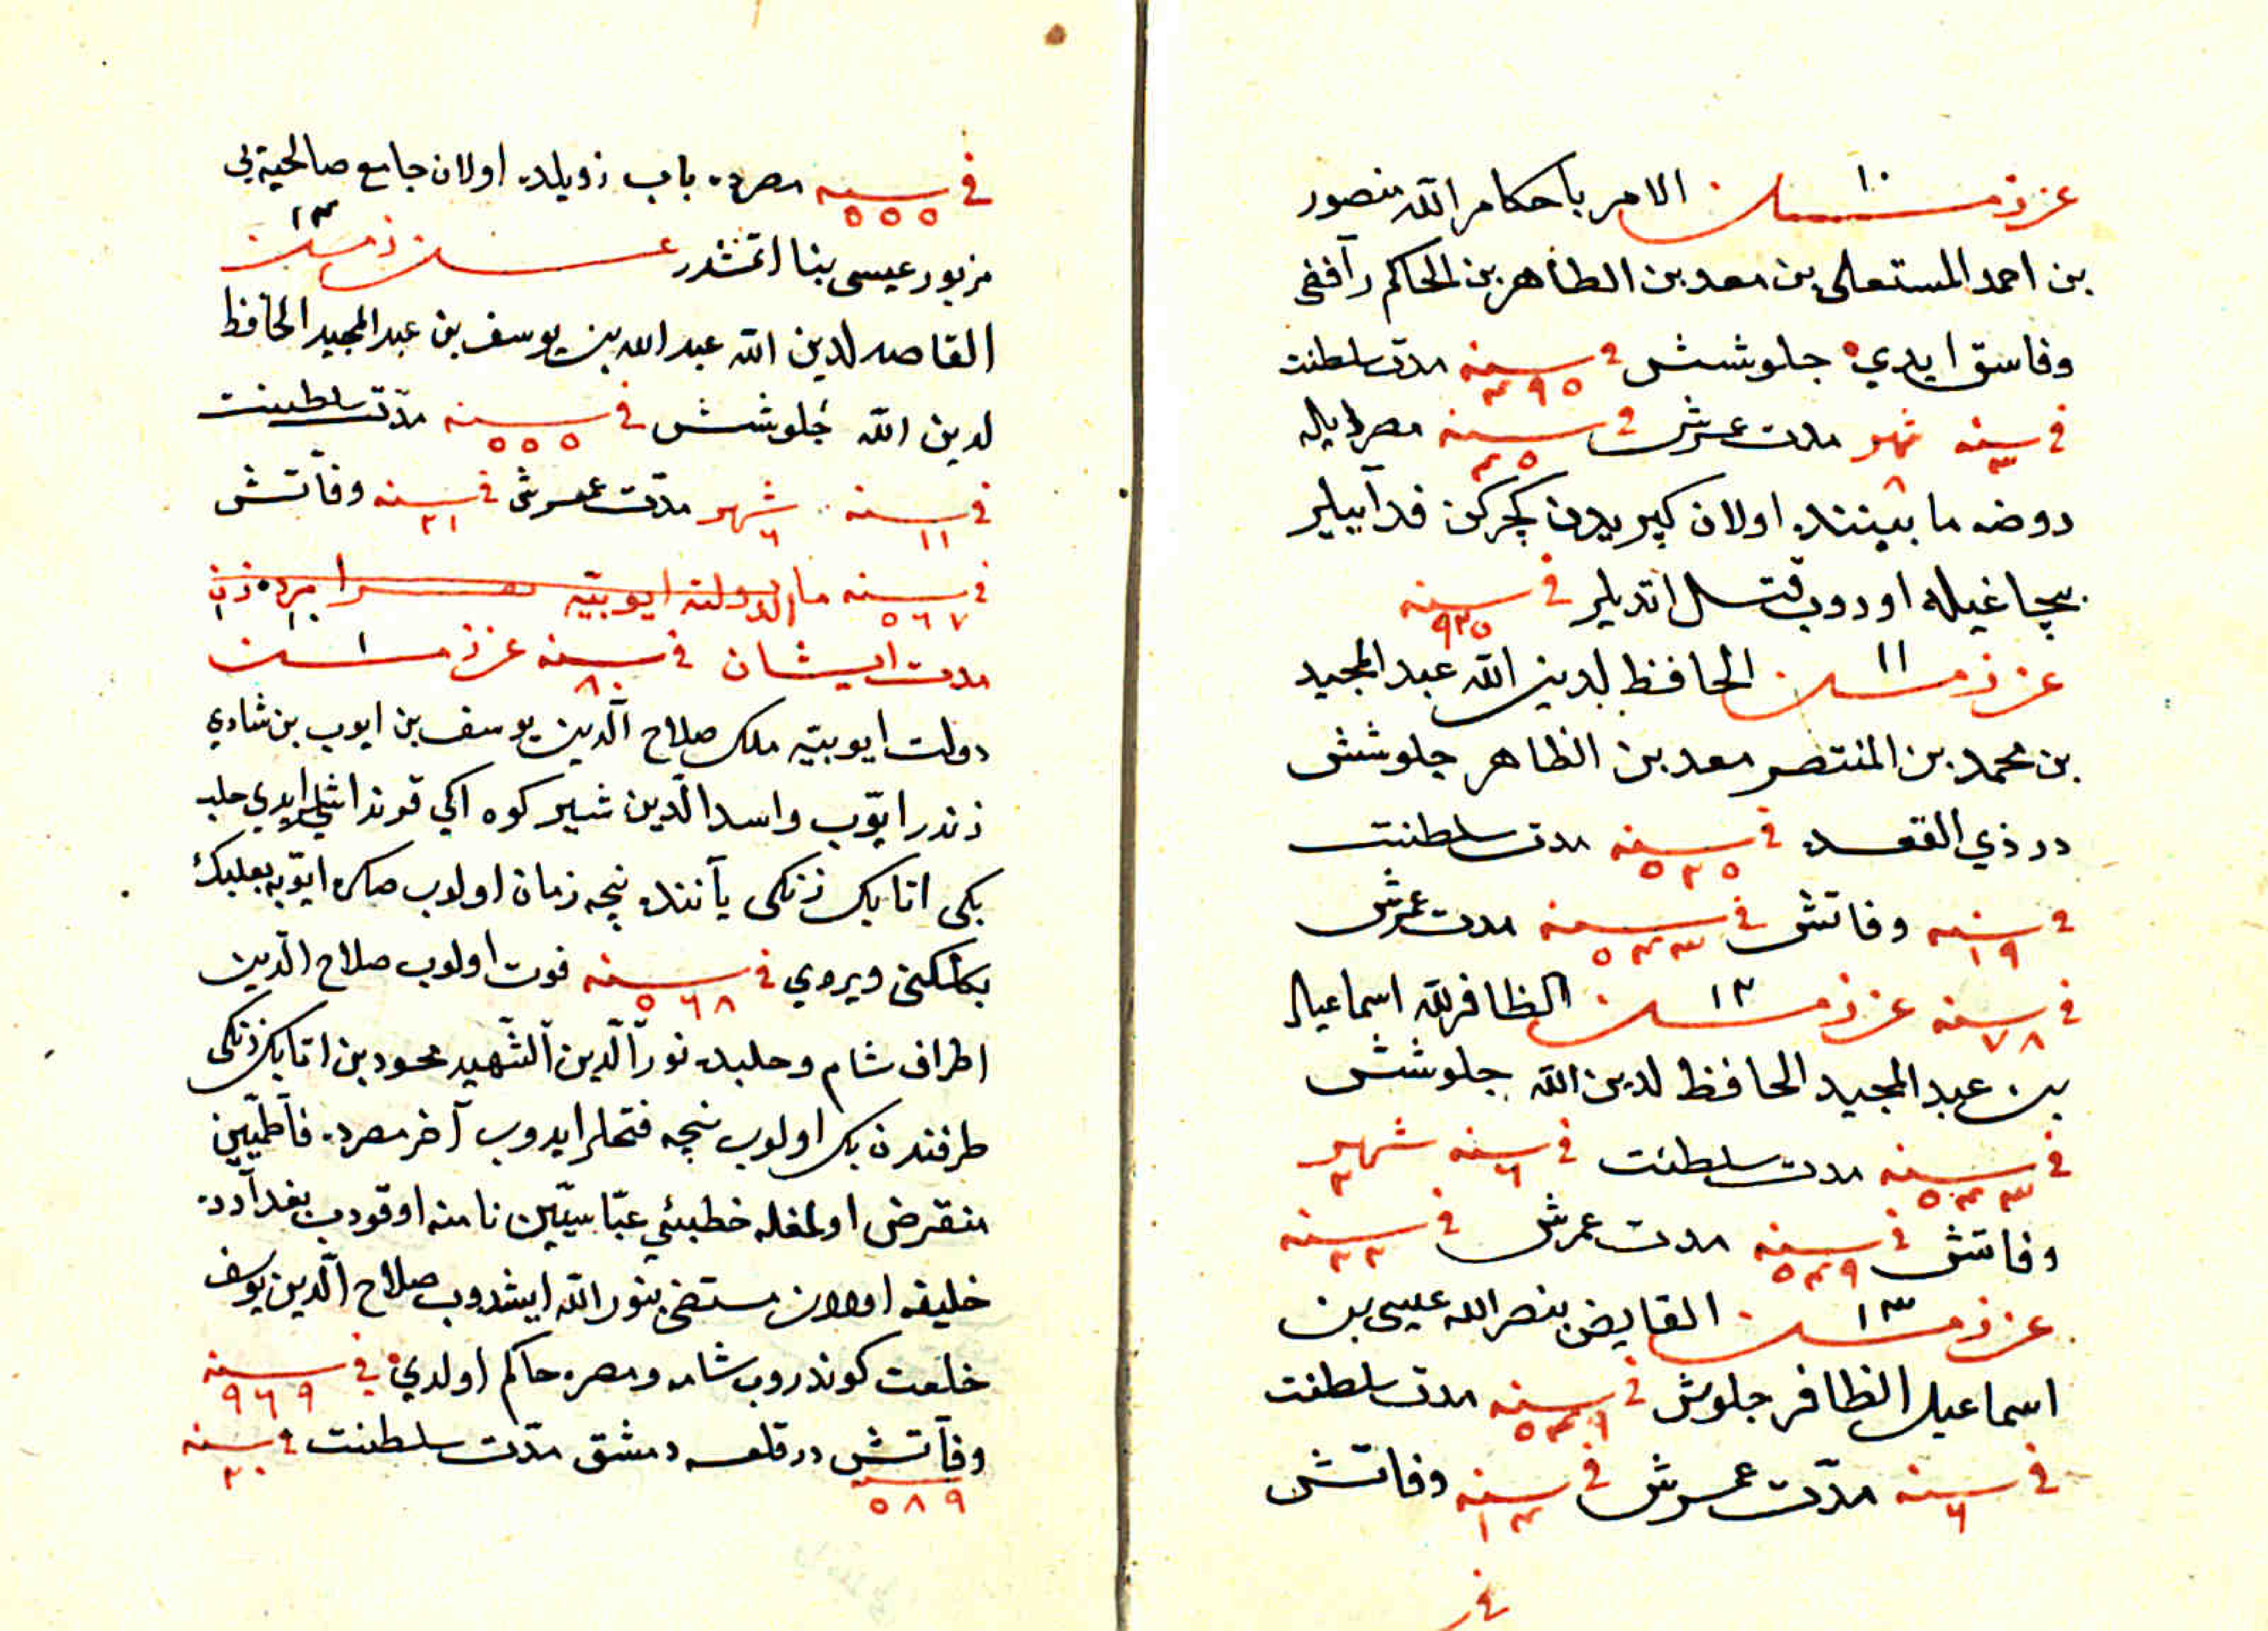 عزیز مسـن ١٠ الامر باحکام الله منصور
بن احمد المستعلى بن معد بن الطاهر بن الحاکم رافضی
وفاسق ایدي جلوشش فی سنه ٤٩٥ مدت سلطنت
فی سنه ٣ شهر ٨ مدت عمرش فی سنه ٤٥ مصر ایله
روضه ما بیننده اولان کپریدن کچرکن فداییلر
بچاغیله اوروب قتل اتدیلر فی سنه ٩٢٥
١١ الحافظ لدین الله عبد المجید
بن محمد بن المنتصر معد بن الظاهر جلوشش
در ذي القعده فی سنه ٥٢٥ مدت سلطنت
فی سنه ١٩ وفاتش فی سنه ٥٤٣ مدت عمرش
فی سنه ٧٨ ١٢ الظافر لله اسماعیل
بن عبد المجید الحافظ لدین الله جلوشش
فی سنه ٥٤٣ مدت سلطنت فی سنه ٦ شهر ٢
وفاتش فی سنه ٥٤٩ مدت عمرش فی سنه ٢٢
١٣ القایض بنصر الله عیسی بن
اسماعیل الظافر جلوش فی سنه ٥٤٩ مدت سلطنت
فی سنه ٦ مدّت عمرش فی سنه ١٢ وفاتش
فی
فی سنه ٥٥٥ مصرده باب زویلده اولان جامع صالحیة یی
مزبور عیسی بنا اتمشدر ١٤
القاصد لدین الله عبد الله بن یوسف بن عبد المجید الحافظ
لدین الله جلوشش فی سنه ٥٥٥ مدّت سلطنت
فی سنه ١١ شهر ٦ مدّت عمرش فی سنه ٢١ وفاتش
فی سنه ٥٦٧ الدولة ایوبیّه
مدت ایشان فی سنه ٨٠ ١
دولت ایوبیّه ملک صلاح الّدین یوسف بن ایوب بن شادي
زندر ایّوب واسد الّدین شیر کوه اکی قرنداشلر ایدي حلب
بکی اتابک زنکی یآننده نیچه زمان اولوب صکره ایّوبه بعلبک
بکلکنی ویردي فی سنه ٥٦٨ فوت اولوب صلاح الّدین
اطراف شام وحلبده نور الّدین الشّهید محمود بن اتابک زنکی
طرفندن بک اولوب نیچه فتحلر ایدوب آخر مصرده فاطمیّین
منقرض اولمغله خطبه‌ئي عبّاسیّین نامنه اوقودوب بغدآدده
خلیفه اولان مستضی بنور الله ایشدوب صلاح الّدین یوسف
خلعت کوندروب شامه ومصره حاکم اولدي فی سنه ٩٦٩
وفاتش ٥٨٩ در قلعه دمشق مدّت سلطنت فی سنه ٢٠